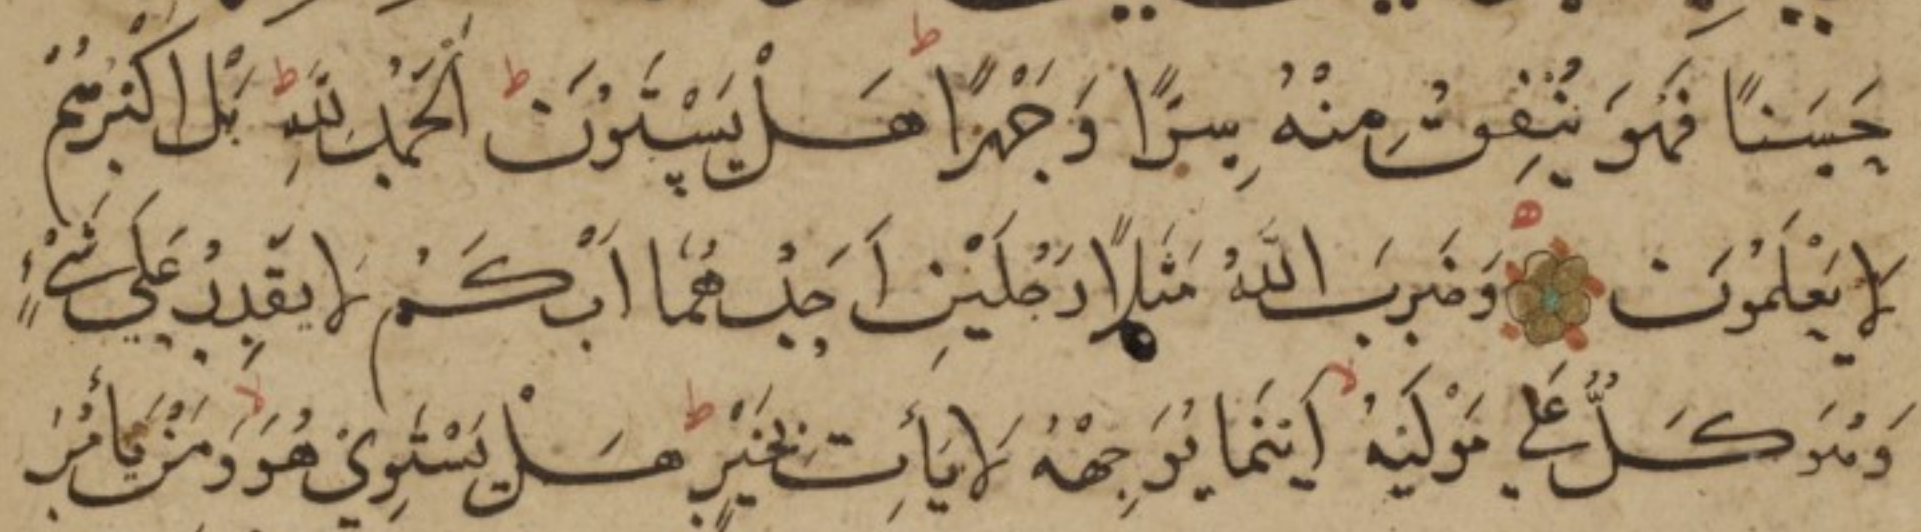 حَسَنًا فَهُوَ يُنْفِقُ مِنْهُ سِرًّا وَجَهْرًا ط هَلْ يَسْتَوُنَ ط اَلْحَمْدُ لِلّٰهِ ط بَلْ اَكْثَرُهُمْ
لَا يَعْلَمُونَ وَضَرَبَ اللّٰهُ مَثَلًا رَجُلَيْنِ اَحَدُهُمَا اَبْكَمُ لَا يَقْدِرُ عَلَى شَيْءٍ
وَهُوَ كَلٌّ عَلَى مَوْلَيٰهُ لا اَيْنَمَا يُوَجِّهْهُ لَا يَأْتِ بِخَيْرٍ ط هَلْ يَسْتَوِي هُوَ لا وَمَنْ يَأْمُرُ